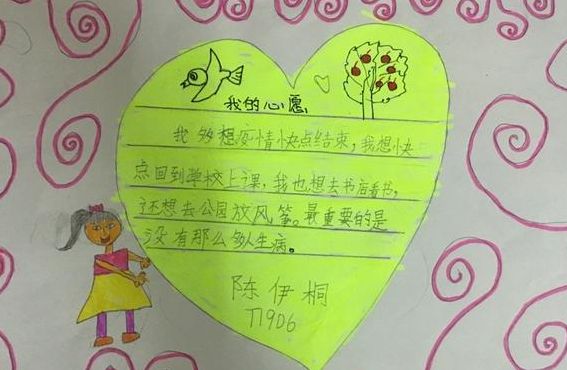 我的心愿
我多想疫情快点结束，我想快
点回到学校上课，我也想去书店看书，
还想去公园放风筝。最重要的是
没有那么多人生病。
陈伊桐
T1906